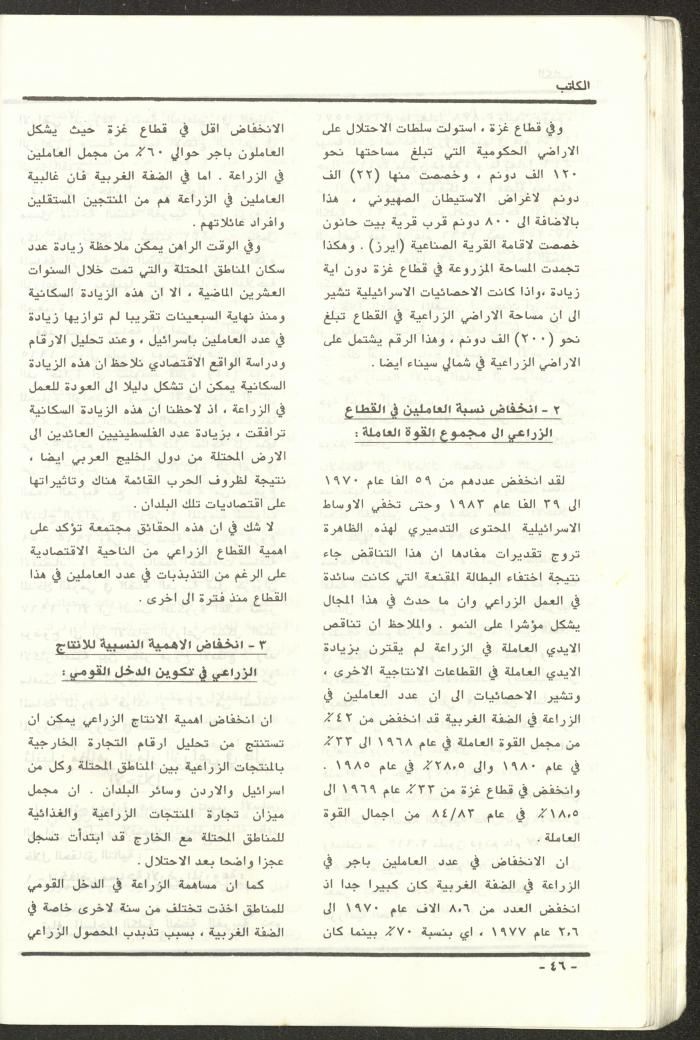 الكاتب
وفي قطاع غزة ، استولت سلطات الاحتلال على
الاراضي الحكومية التي تبلغ مساحتها نحو
١٢٠ الف دونم ، وخصصت منها (٢٢) الف
دونم لاغراض الاستيطان الصهيوني ، هذا
بالاضافة الى ٨٠٠ دونم قرب قرية بيت حانون
خصصت لاقامة القرية الصناعية (ايرز) . وهكذا
تجمدت المساحة المزروعة في قطاع غزة دون اية
زيادة ،واذا كانت الاحصائيات الاسرائيلية تشير
الى ان مساحة الاراضي الزراعية في القطاع تبلغ
نحو (٢٠٠) الف دونم ، وهذا الرقم يشتمل على
الاراضي الزراعية في شمالي سيناء ايضا .
٢ - انخفاض نسبة العاملين في القطاع
الزراعي الى مجموع القوة العاملة :
لقد انخفض عددهم من ٥٩ الفا عام ١٩٧٠
الى ٣٩ الفا عام ١٩٨٣ وحتى تخفي الاوساط
الاسرائيلية المحتوى التدميري لهذه الظاهرة
تروج تقديرات مفادها ان هذا التناقض جاء
نتيجة اختفاء البطالة المقنعة التي كانت سائدة
في العمل الزراعي وان ما حدث في هذا المجال
يشكل مؤشرا على النمو . والملاحظ ان تناقص
الايدي العاملة في الزراعة لم يقترن بزيادة
الايدي العاملة في القطاعات الانتاجية الاخرى ،
وتشير الاحصائيات الى ان عدد العاملين في
الزراعة في الضفة الغربية قد انخفض من ٤٢٪
من مجمل القوة العاملة في عام ١٩٦٨ الى ٣٣٪
في عام ١٩٨٠ والى ٢٨,٥٪ في عام ١٩٨٥ .
وانخفض في قطاع غزة من ٣٣٪ عام ١٩٦٩ الى
١٨,٥٪ في عام ٨٤/٨٣ من اجمال القوة
العاملة .
ان الانخفاض في عدد العاملين باجر في
الزراعة في الضفة الغربية كان كبيرا جدا اذ
انخفض العدد من ٨,٦ الاف عام ١٩٧٠ الى
٢,٦ عام ١٩٧٧ ، اي بنسبة ٧٠٪ بينما كان
الانخفاض اقل في قطاع غزة حيث يشكل
العاملون باجر حوالي ٦٠٪ من مجمل العاملين
في الزراعة . اما في الضفة الغربية فان غالبية
العاملين في الزراعة هم من المنتجين المستقلين
وافراد عائلاتهم .
وفي الوقت الراهن يمكن ملاحظة زيادة عدد
سكان المناطق المحتلة والتي تمت خلال السنوات
العشرين الماضية ، الا ان هذه الزيادة السكانية
ومنذ نهاية السبعينات تقريبا لم توازيها زيادة
في عدد العاملين باسرائيل ، وعند تحليل الارقام
ودراسة الواقع الاقتصادي نلاحظ ان هذه الزيادة
السكانية يمكن ان تشكل دليلا الى العودة للعمل
في الزراعة ، اذ لاحظنا ان هذه الزيادة السكانية
ترافقت ، بزيادة عدد الفلسطينيين العائدين الى
الارض المحتلة من دول الخليج العربي ايضا ،
نتيجة لظروف الحرب القائمة هناك وتاثيراتها
على اقتصاديات تلك البلدان .
لا شك في ان هذه الحقائق مجتمعة تؤكد على
اهمية القطاع الزراعي من الناحية الاقتصادية
على الرغم من التذبذبات في عدد العاملين في هذا
القطاع منذ فترة الى اخرى .
٣ - انخفاض الاهمية النسبية للانتاج
الزراعي في تكوين الدخل القومي :
ان انخفاض اهمية الانتاج الزراعي يمكن ان
تستنتج من تحليل ارقام التجارة الخارجية
بالمنتجات الزراعية بين المناطق المحتلة وكل من
اسرائيل والاردن وسائر البلدان . ان مجمل
ميزان تجارة المنتجات الزراعية والغذائية
للمناطق المحتلة مع الخارج قد ابتدأت تسجل
عجزا واضحا بعد الاحتلال .
كما ان مساهمة الزراعة في الدخل القومي
للمناطق اخذت تختلف من سنة لاخرى خاصة في
الضفة الغربية ، بسبب تذبذب المحصول الزراعي
- ٤٦ -